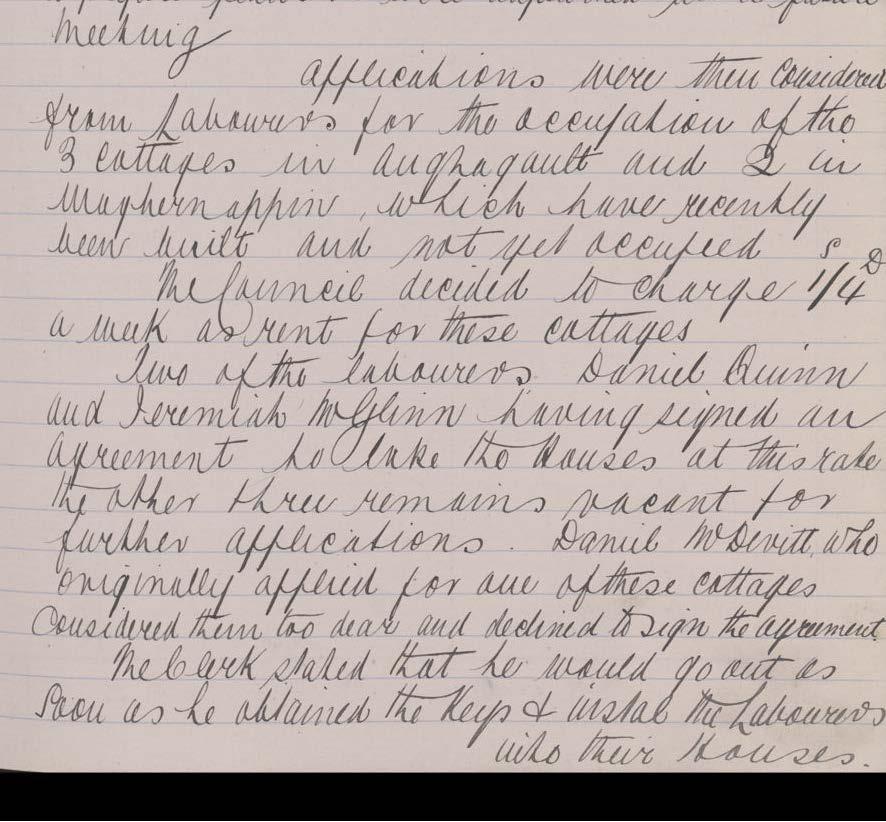 future
meeting
Applications were then considered
from Labourers for the occupation of the
3 cottages in Aughagault and 2 in
Maghernappin, which have recently
been built and not yet occupied
The Council decided to charge 1/4
a week as rent for these cottages
Two of the labourers Daniel Quinn
and Jeremiah McGlinn having signed an
agreement to take the Houses at this rate
the other three remains vacant for
further applications. Daniel McDevitt, who
originally applied for one of these cottages
Considered them too dear and declined to sign the agreement.
The Clerk stated that he would go out as
soon as he obtained the Keys & instal the Labourers
into their Houses.